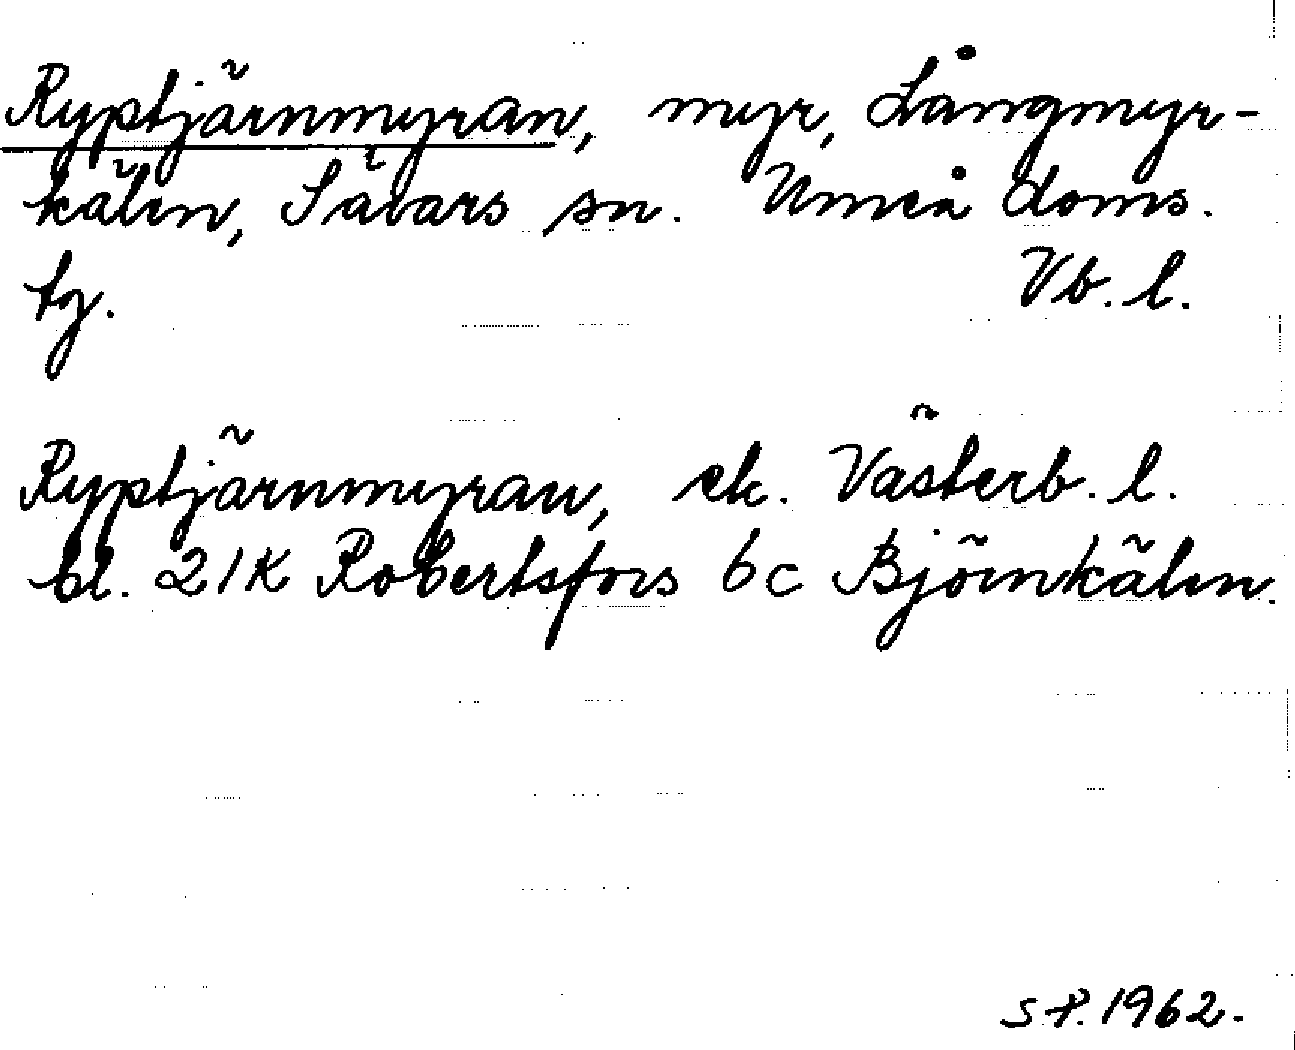 Ryptjärnmyran, myr, Långmyr-
kälen, Sävars sn. Umeå doms.
tg. Vb. l.
Ryptjärnmyran, ek. Västerb. l.
bl. 21K Robertsfors 6c Björnkälen.
S.P. 1962.